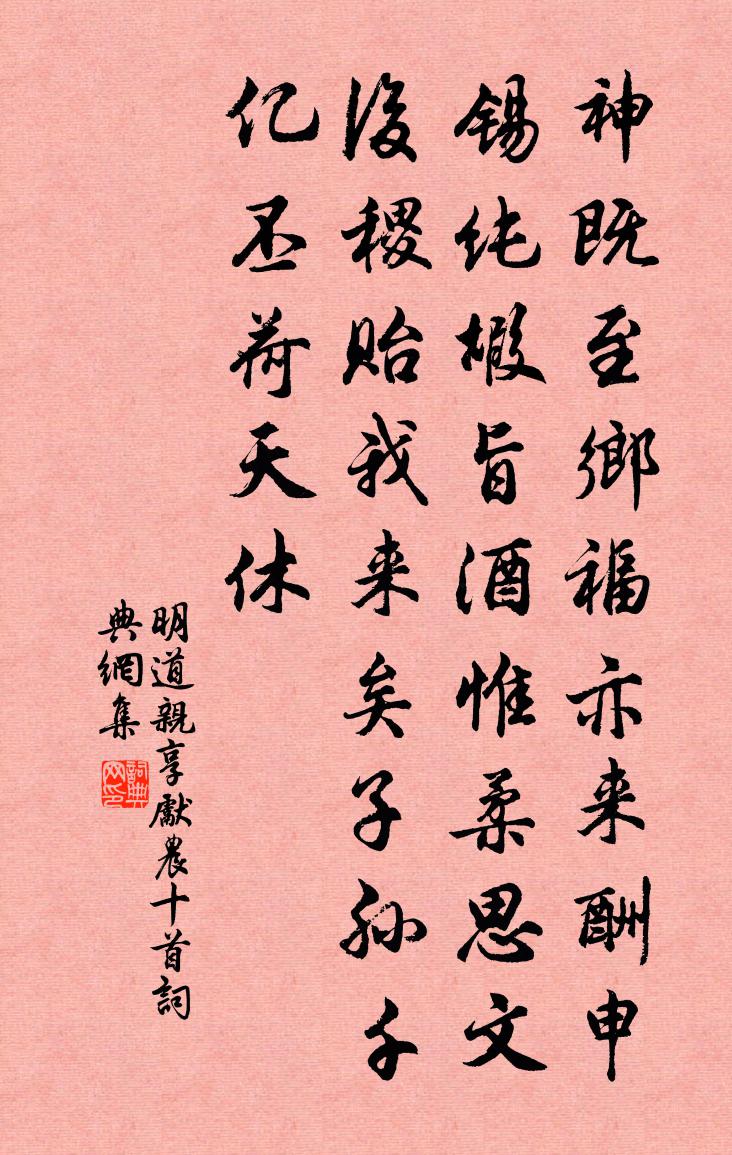 神既至鄉福亦来酬申
锡纯嘏旨酒惟柔思文
後稷貽我来矣子孙千
亿丕荷天休
明道親享獻農十首詞
典網集
詞典网印